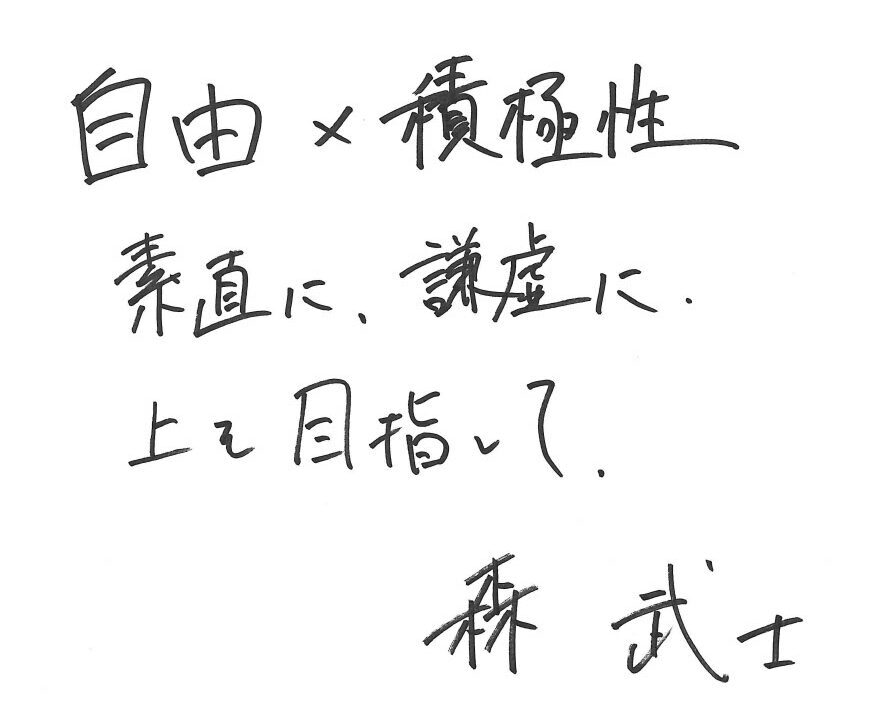 自由×積極性
素直に、謙虚に.
上を目指して.
森 武士